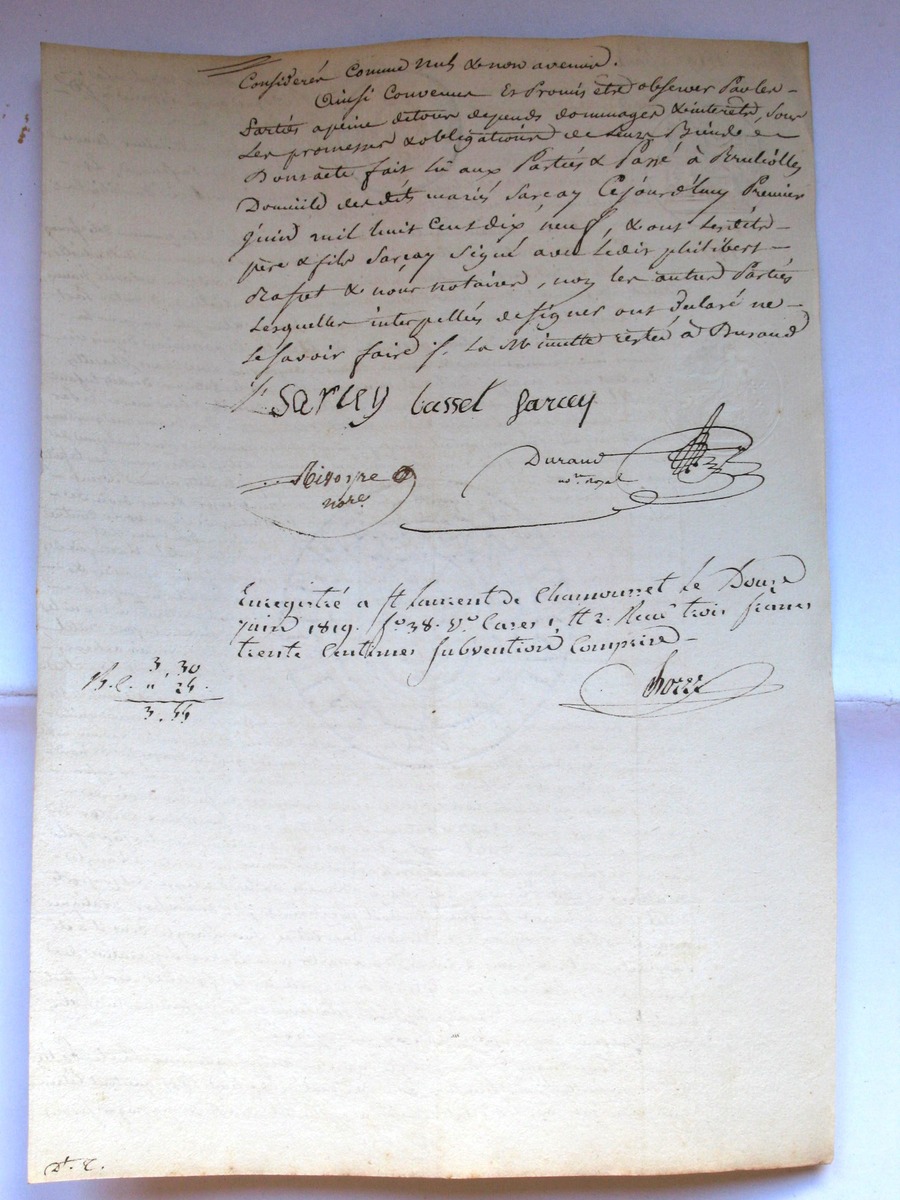 Considerés Comme nuls & non avenus.
Ainsi Convenus Et Promis être observer Par les
Parties a peine de tous depends dommages & interets, sous
Les promesses & obligations de Leurs Biends &
Dont acte fait Lû aux Parties & Passé à
Domicile des dits mariés Sarcay Cejourdhuy Premier
juin mil huit Cent dix neuf, & ont lesdits
père & fils Sarcay Signé avec Ledit philibert
& nous notaires, non les autres Parties
Lesquelles interpellées de signer ont Declaré ne
Le savoir faire /. La Minutte restée à Durand
/. Sarcey Sarcey
Durand
nore
nore royal
Enregistré a St Laurent de Chamousset Le Douze
juin 1819. fo 38. Vo Cases 1 & 2. Recu trois francs
trente Centimes Subvention Comprise
3, 30
" 25.
3. 55